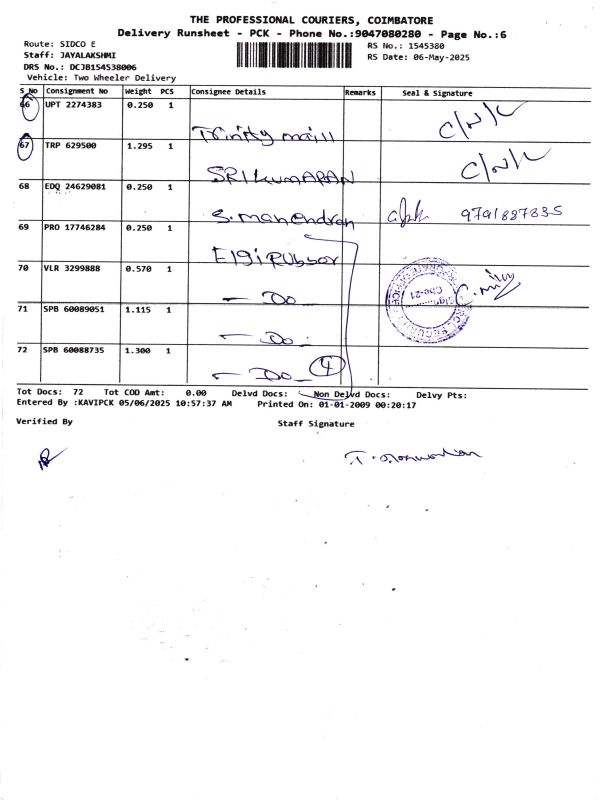 THE PROFESSIONAL COURIERS, COIMBATORE
Delivery Runsheet - PCK - Phone No.:9047080280 - Page No.:6
Route: SIDCO E
RS No.: 1545380
Staff: JAYALAKSHMI
RS Date: 06-May-2025
DRS No.: DCJB154538006
Vehicle: Two Wheeler Delivery
S_No Consignment No Weight PCS Consignee Details Remarks Seal & Signature
66 UPT 2274383 0.250 1 C/N/L
Trinity maill
67 TRP 629500 1.295 1 C/N/L
SRI KumARAN
68 EDQ 24629081 0.250 1
S. manendran 9791887835
69 PRO 17746284 0.250 1
Elgi Rubbor
70 VLR 3299888 0.570 1
— Do —
71 SPB 60089051 1.115 1
— Do —
72 SPB 60088735 1.300 1
— Do — 4
Tot Docs: 72 Tot COD Amt: 0.00 Delvd Docs: Non Delvd Docs: Delvy Pts:
Entered By :KAVIPCK 05/06/2025 10:57:37 AM Printed On: 01-01-2009 00:20:17
Verified By Staff Signature